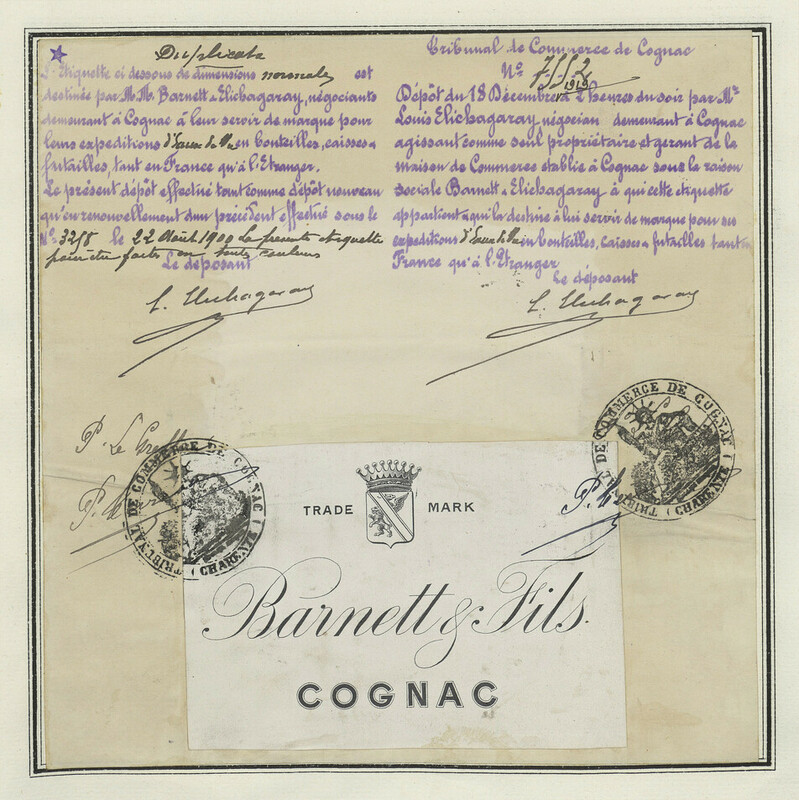 Duplicata
L'Etiquette ci dessous de dimensions normales est
destinée par M.M. Barnett & Elichagaray, négociants
demeurant à Cognac à leur servir de marque pour
leurs expeditions d'Eaux de Vie en bouteilles, caisses &
futailles, tant en France qu'à l'Etranger.
Le présent dépôt effectué tout comme dépôt nouveau
qu'en renouvellement d'un précédent effectué sous le
N° 3218 le 22 Août 1900 La presente etiquette
pourra être faite en toutes couleurs
Le déposant
L. Elichagaray
Tribunal de Commerce de Cognac
N° 7552
1919
Dépôt du 18 Décembre à 2 heures du soir par Mr
Louis Elichagaray, négociant demeurant à Cognac
agissant comme seul propriétaire et gerant de la
maison de Commerce établie à Cognac sous la raison
sociale Barnett & Elichagaray à qui cette etiquette
appartient & qui la destine à lui servir de marque pour ses
expeditions d'Eaux de Vie en bouteilles, caisses & futailles tant en
France qu'à l'Etranger
Le déposant
L. Elichagaray
P. Le Greff
TRIBUNAL DE COMMERCE DE COGNAC (CHARENTE)
TRIBUNAL DE COMMERCE DE COGNAC (CHARENTE)
TRADE MARK
Barnett & Fils.
COGNAC